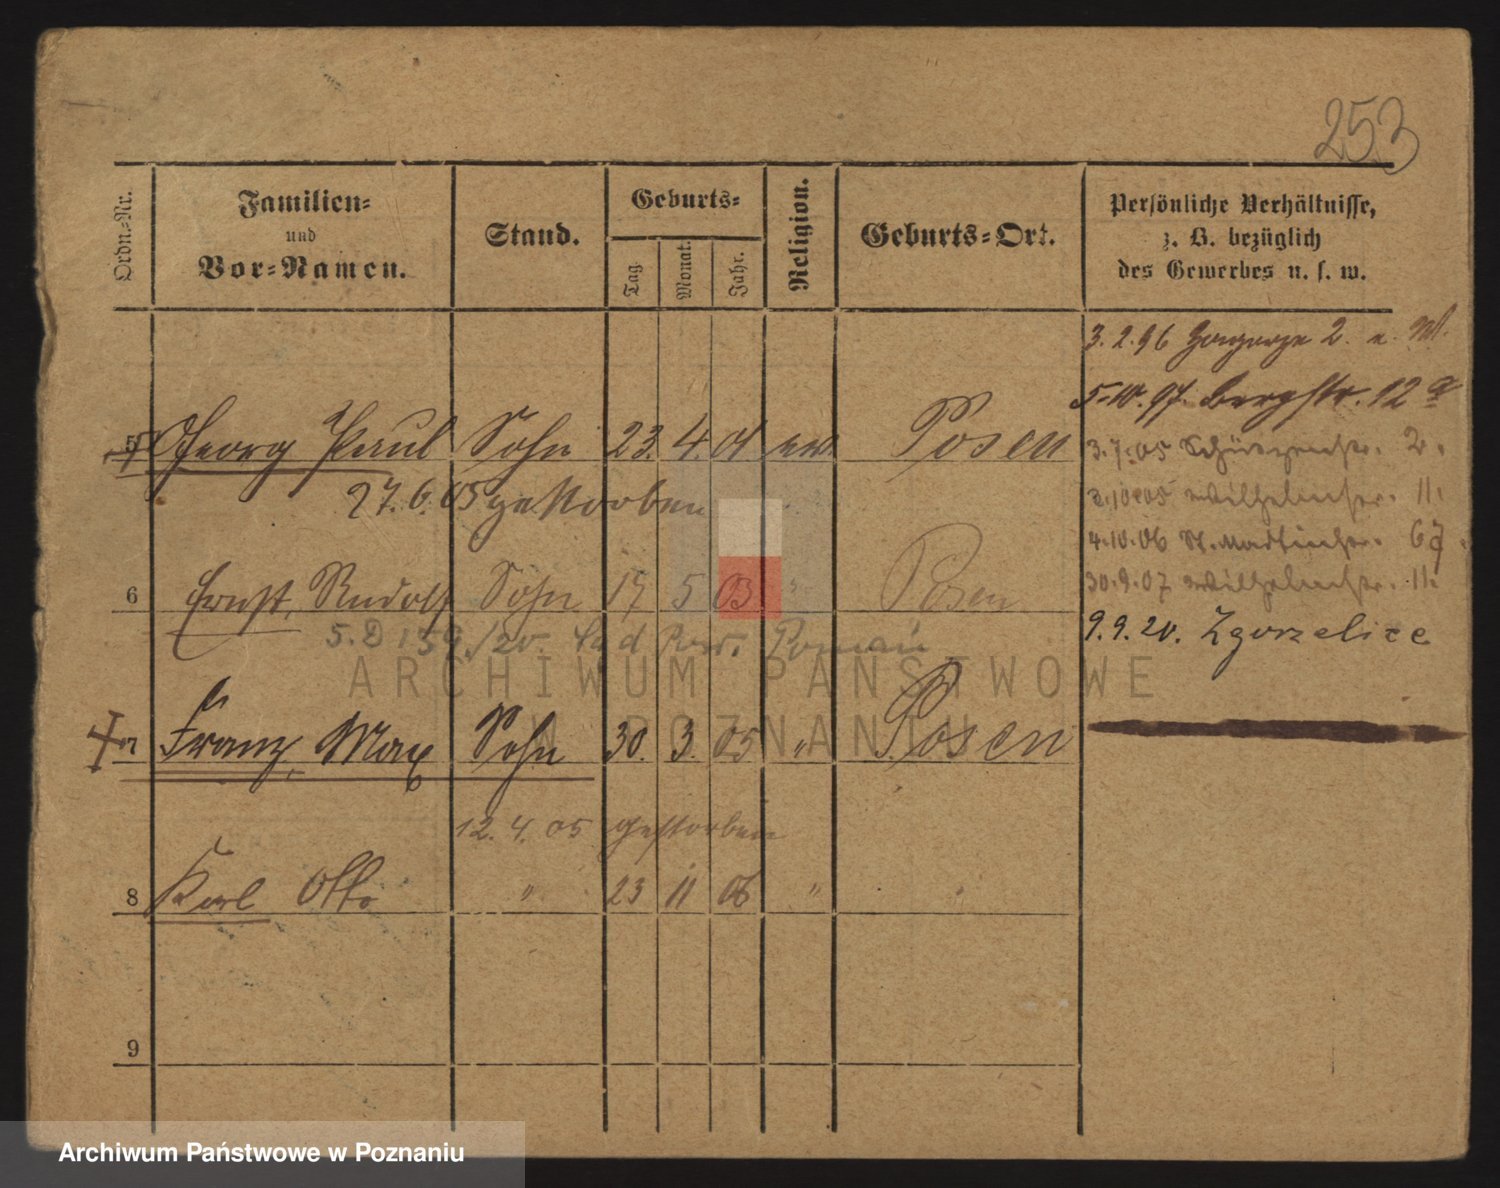 253
Ordn.-Nr.
Familien-
und
Vor-Namen.
Stand.
Geburts-
Tag.
Monat.
Jahr.
Religion.
Geburts-Ort.
Persönliche Verhältnisse,
z. B. bezüglich
des Gewerbes u. s. w.
3. 2. 96 2.
5.10.97. Bergstr. 12 a
5 Georg Paul Sohn 23. 4. 01 ev. Posen
3.7.05 Schützenstr. 2.
27.6.05 gestorben
3.10.05 Wilhelmstr. 11.
4.10.06 St. Martinstr. 67.
30.9.07 Wilhelmstr. 11.
6 Ernst, Rudolf Sohn 17 5 03 " Posen
9.9.20. Zgorzelice
5. D 159/20. Sąd Pow. Poznań
7 Franz, Max Sohn 30. 3. 05 " Posen
12. 4. 05 gestorben
8 Karl Otto " 23 11 06 " "
9
ARCHIWUM PAŃSTWOWE
W POZNANIU
Archiwum Państwowe w Poznaniu